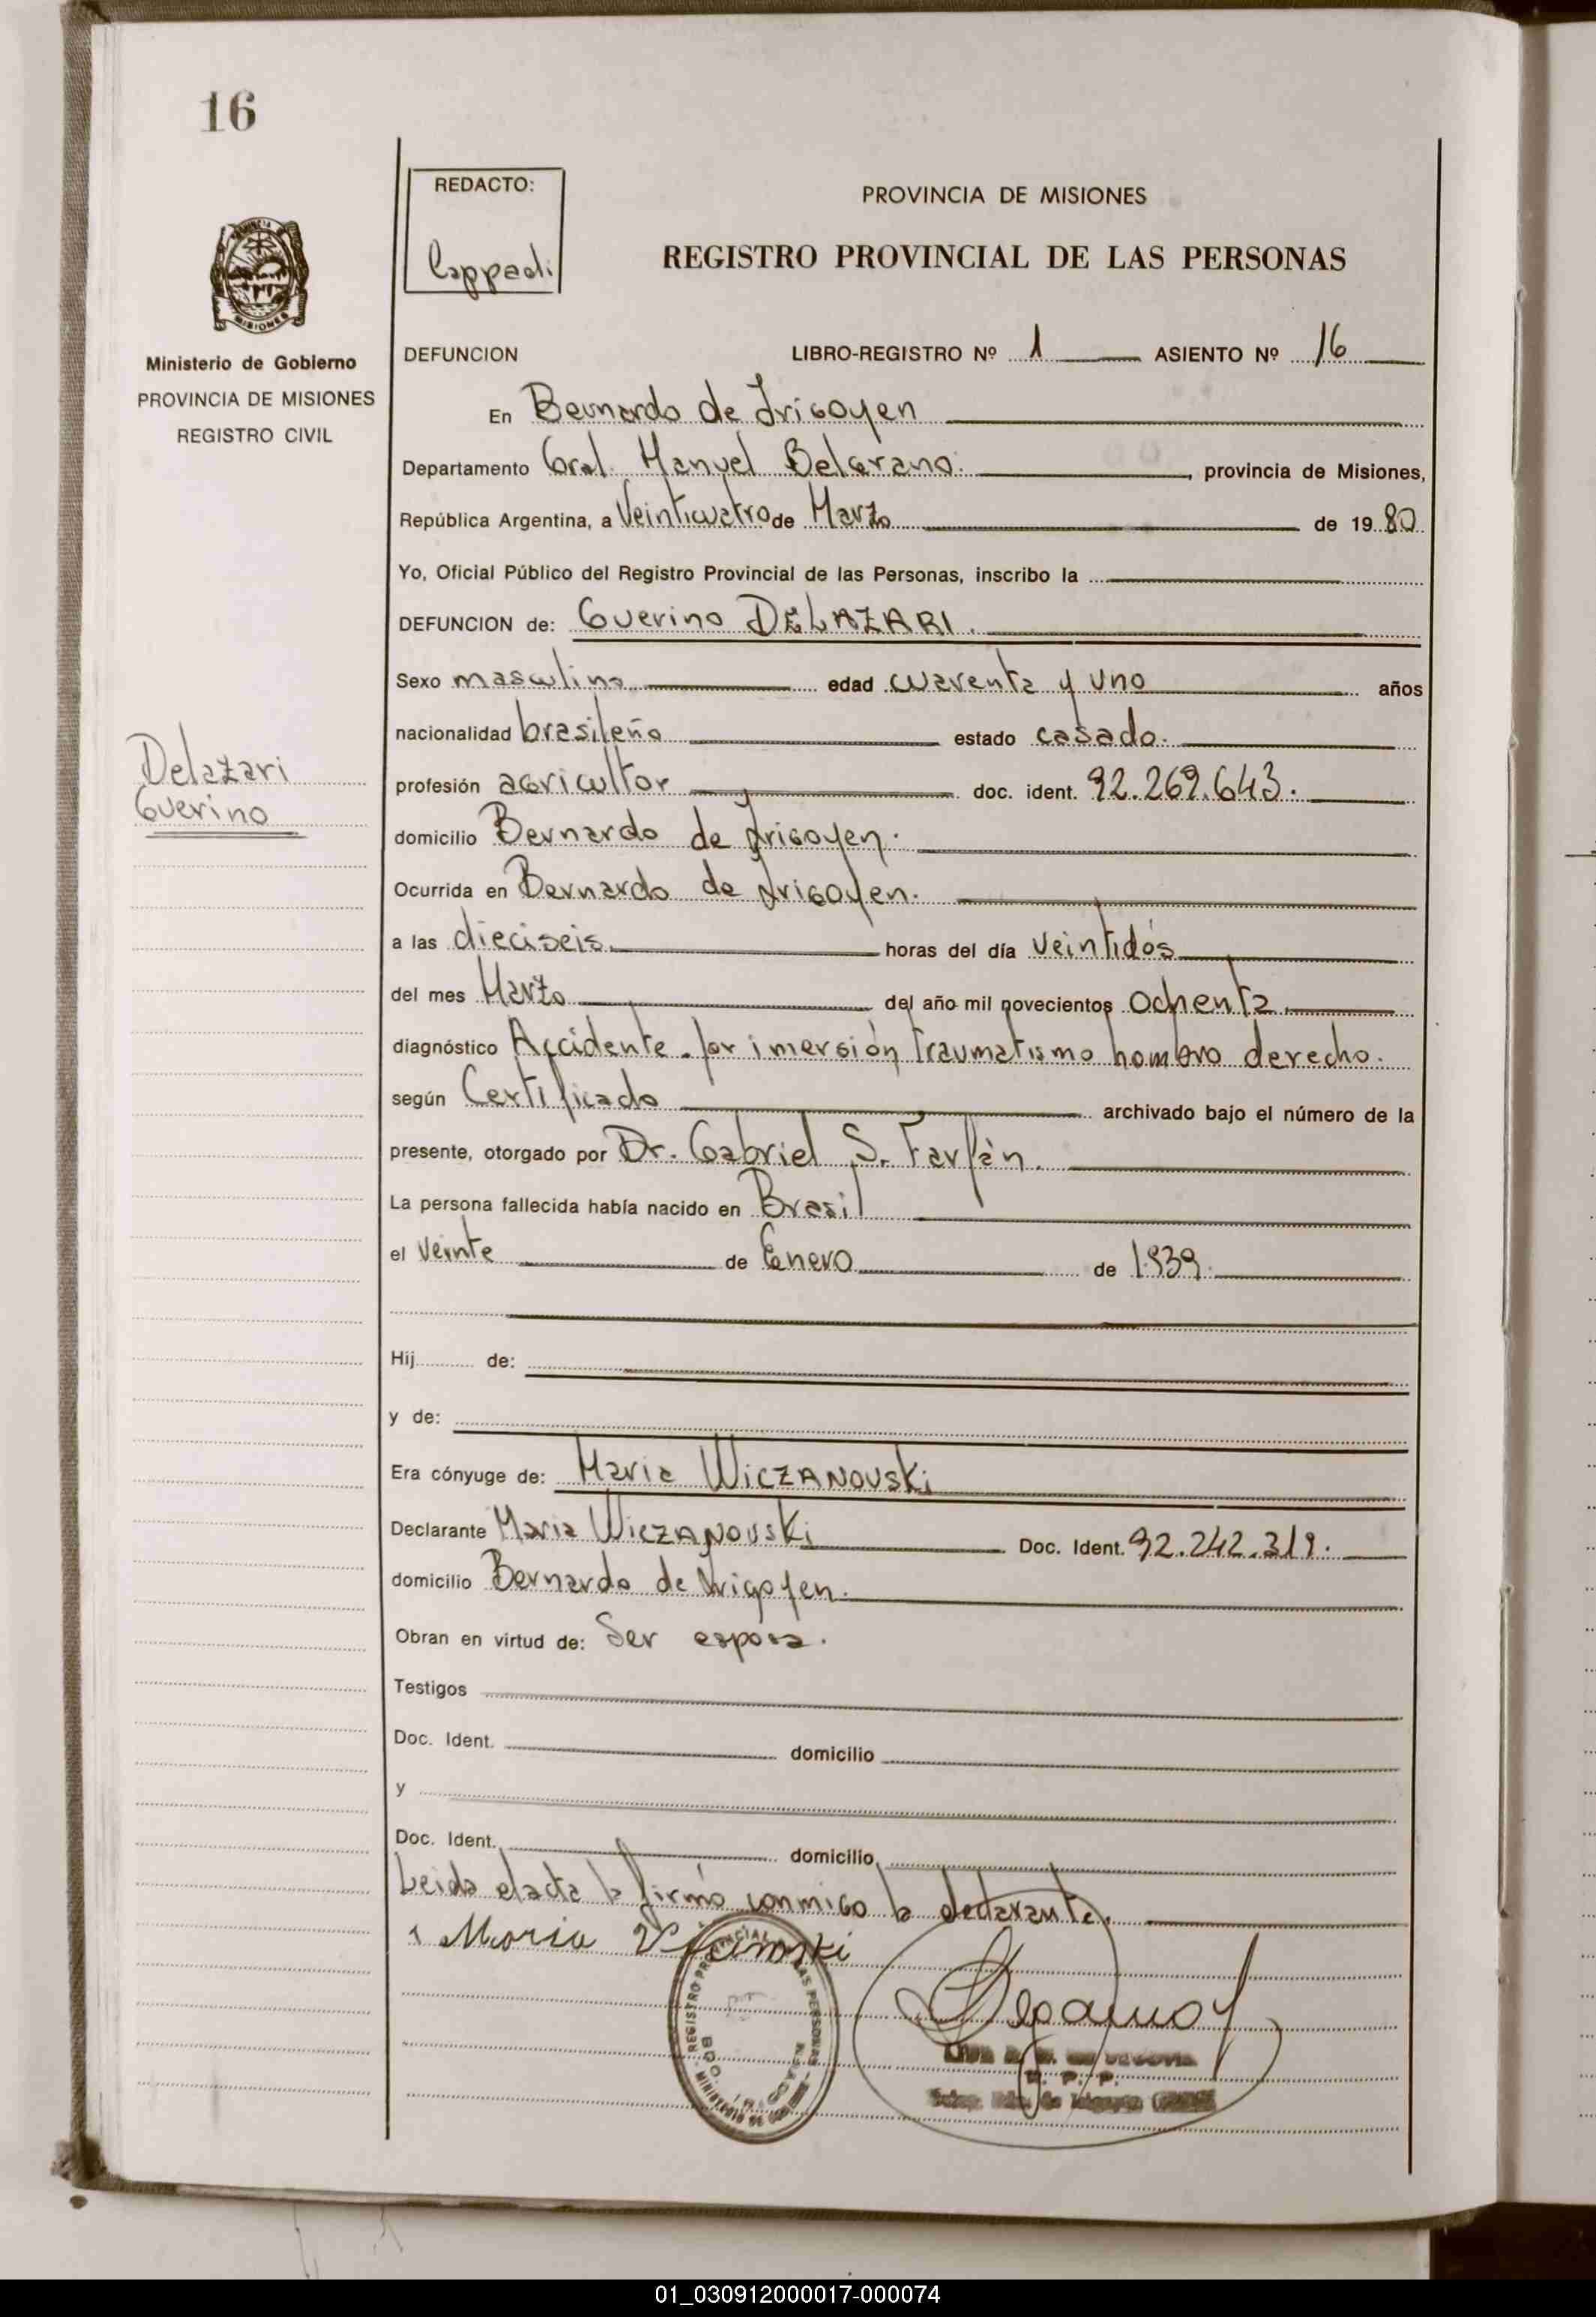 16
REDACTO:
Cappadi
PROVINCIA DE MISIONES
REGISTRO PROVINCIAL DE LAS PERSONAS
MISIONES
Ministerio de Gobierno
PROVINCIA DE MISIONES
REGISTRO CIVIL
DEFUNCION LIBRO-REGISTRO Nº 1 ASIENTO Nº 16
En Bernardo de Irigoyen
Departamento Gral. Manuel Belgrano. , provincia de Misiones,
República Argentina, a Veinticuatro de Marzo de 1980
Yo, Oficial Público del Registro Provincial de las Personas, inscribo la
DEFUNCION de: Guerino DELAZARI.
Sexo masculino edad cuarenta y uno años
nacionalidad brasileña estado casado.
Delazari
Guerino
profesión agricultor doc. ident. 92.269.643.
domicilio Bernardo de Irigoyen.
Ocurrida en Bernardo de Irigoyen.
a las dieciseis horas del día veintidós
del mes Marzo del año mil novecientos ochenta.
diagnóstico Accidente. por imersión, traumatismo hombro derecho.
según Certificado archivado bajo el número de la
presente, otorgado por Dr. Gabriel S. Farfán.
La persona fallecida había nacido en Brasil
el veinte de Enero de 1939.
Hij de:
y de:
Era cónyuge de: Maria WICZANOVSKi
Declarante Maria WICZANOVSKi Doc. Ident. 92.242.319.
domicilio Bernardo de Irigoyen.
Obran en virtud de: Ser esposa.
Testigos
Doc. Ident. domicilio
y
Doc. Ident. domicilio
Leida el acta la firmó conmigo la declarante.
Maria
REGISTRO PROVINCIAL DE LAS PERSONAS
MINISTERIO DE GOBIERNO
R. P. P.
01_030912000017-000074